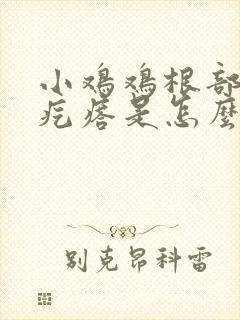 小鸡鸡根部
疙瘩是怎麼
别克昂科雷